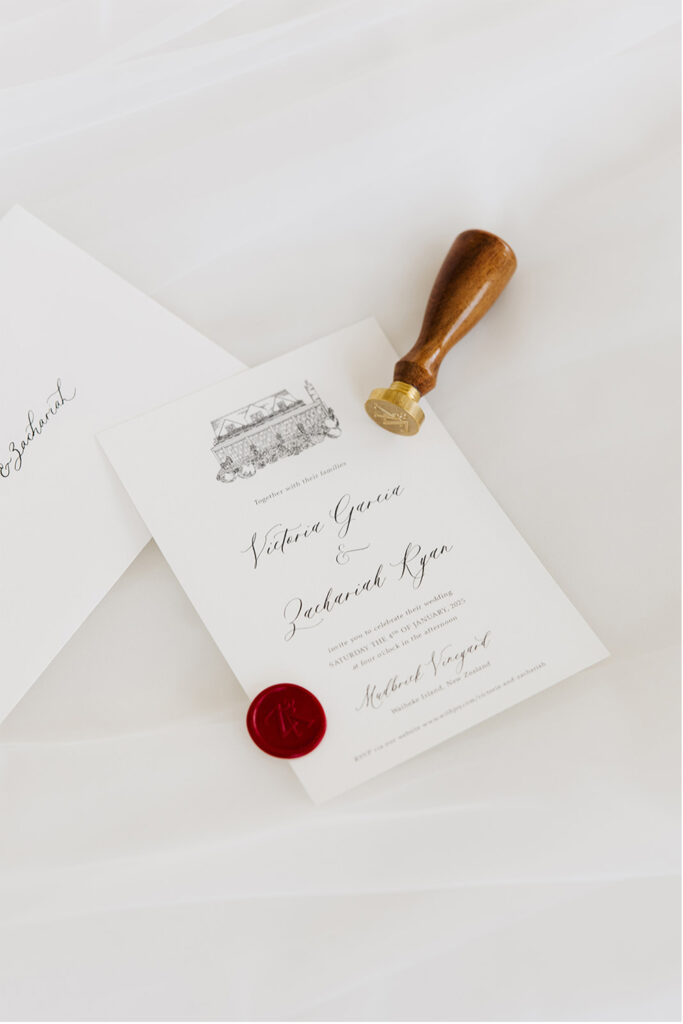 & Zachariah
Together with their families
Victoria Garcia
&
Zachariah Ryan
invite you to celebrate their wedding
SATURDAY THE 4TH OF JANUARY, 2025
at four o'clock in the afternoon
Mudbrick Vineyard
Waiheke Island, New Zealand
RSVP via our website www.withjoy.com/victoria-and-zachariah